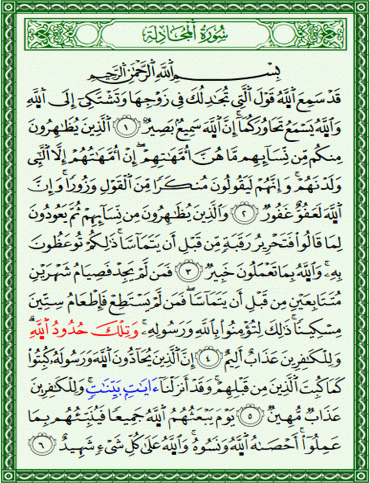 سُورَةُ الْمُجَادِلَة
بِسْمِ اللَّهِ الرَّحْمَٰنِ الرَّحِيمِ
قَدْ سَمِعَ اللَّهُ قَوْلَ الَّتِي تُجَادِلُكَ فِي زَوْجِهَا وَتَشْتَكِي إِلَى اللَّهِ
وَاللَّهُ يَسْمَعُ تَحَاوُرَكُمَا ۚ إِنَّ اللَّهَ سَمِيعٌ بَصِيرٌ ﴿١﴾ الَّذِينَ يُظَاهِرُونَ
مِنكُم مِّن نِّسَائِهِم مَّا هُنَّ أُمَّهَاتِهِمْ ۖ إِنْ أُمَّهَاتُهُمْ إِلَّا اللَّائِي
وَلَدْنَهُمْ ۚ وَإِنَّهُمْ لَيَقُولُونَ مُنكَرًا مِّنَ الْقَوْلِ وَزُورًا ۚ وَإِنَّ
اللَّهَ لَعَفُوٌّ غَفُورٌ ﴿٢﴾ وَالَّذِينَ يُظَاهِرُونَ مِن نِّسَائِهِمْ ثُمَّ يَعُودُونَ
لِمَا قَالُوا فَتَحْرِيرُ رَقَبَةٍ مِّن قَبْلِ أَن يَتَمَاسَّا ۚ ذَٰلِكُمْ تُوعَظُونَ
بِهِ ۚ وَاللَّهُ بِمَا تَعْمَلُونَ خَبِيرٌ ﴿٣﴾ فَمَن لَّمْ يَجِدْ فَصِيَامُ شَهْرَيْنِ
مُتَتَابِعَيْنِ مِن قَبْلِ أَن يَتَمَاسَّا ۖ فَمَن لَّمْ يَسْتَطِعْ فَإِطْعَامُ سِتِّينَ
مِسْكِينًا ۚ ذَٰلِكَ لِتُؤْمِنُوا بِاللَّهِ وَرَسُولِهِ ۚ وَتِلْكَ حُدُودُ اللَّهِ ۗ
وَلِلْكَافِرِينَ عَذَابٌ أَلِيمٌ ﴿٤﴾ إِنَّ الَّذِينَ يُحَادُّونَ اللَّهَ وَرَسُولَهُ كُبِتُوا
كَمَا كُبِتَ الَّذِينَ مِن قَبْلِهِمْ ۚ وَقَدْ أَنزَلْنَا آيَاتٍ بَيِّنَاتٍ ۚ وَلِلْكَافِرِينَ
عَذَابٌ مُّهِينٌ ﴿٥﴾ يَوْمَ يَبْعَثُهُمُ اللَّهُ جَمِيعًا فَيُنَبِّئُهُم بِمَا
عَمِلُوا ۚ أَحْصَاهُ اللَّهُ وَنَسُوهُ ۚ وَاللَّهُ عَلَىٰ كُلِّ شَيْءٍ شَهِيدٌ ﴿٦﴾